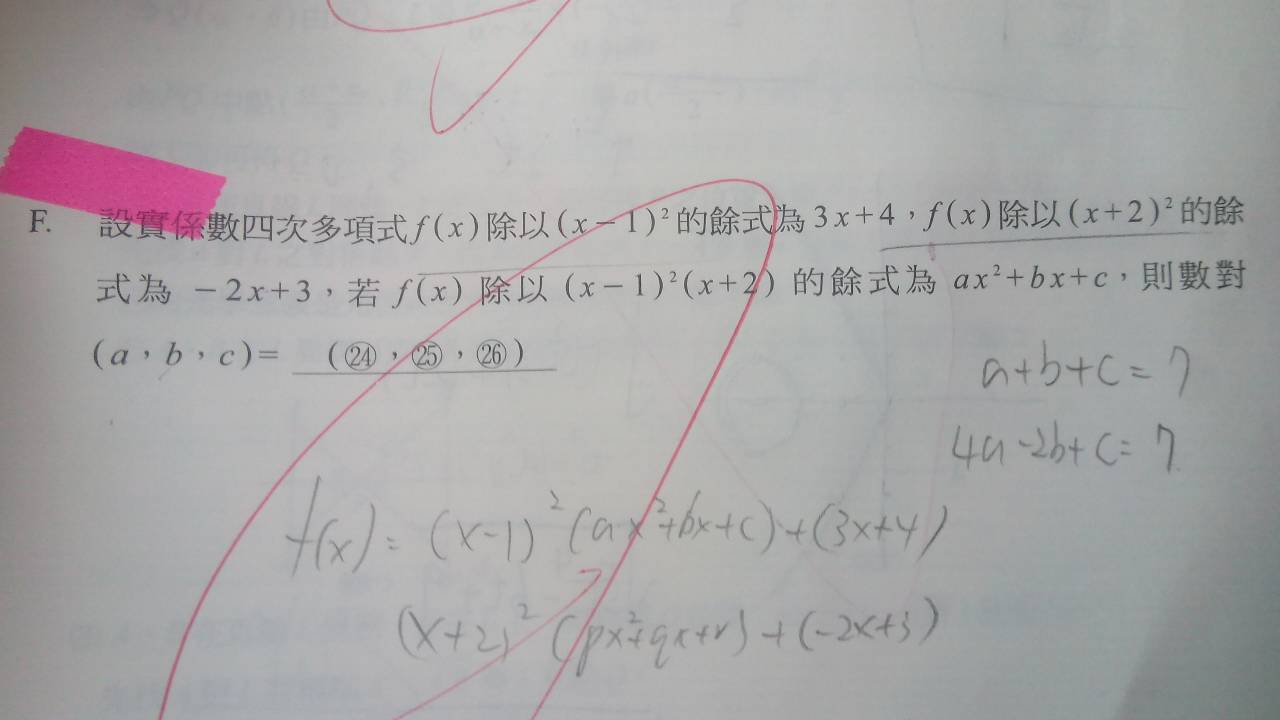 F. 設實係數四次多項式f(x)除以(x－1)²的餘式為3x+4，f(x)除以(x+2)²的餘
式為 －2x+3，若 f(x) 除以 (x－1)²(x+2) 的餘式為 ax²+bx+c，則數對
(a，b，c)= (㉔，㉕，㉖)
a+b+c=7
4a-2b+c=7
f(x)=(x-1)²(ax²+bx+c)+(3x+4)
(x+2)²(px²+qx+r)+(-2x+3)